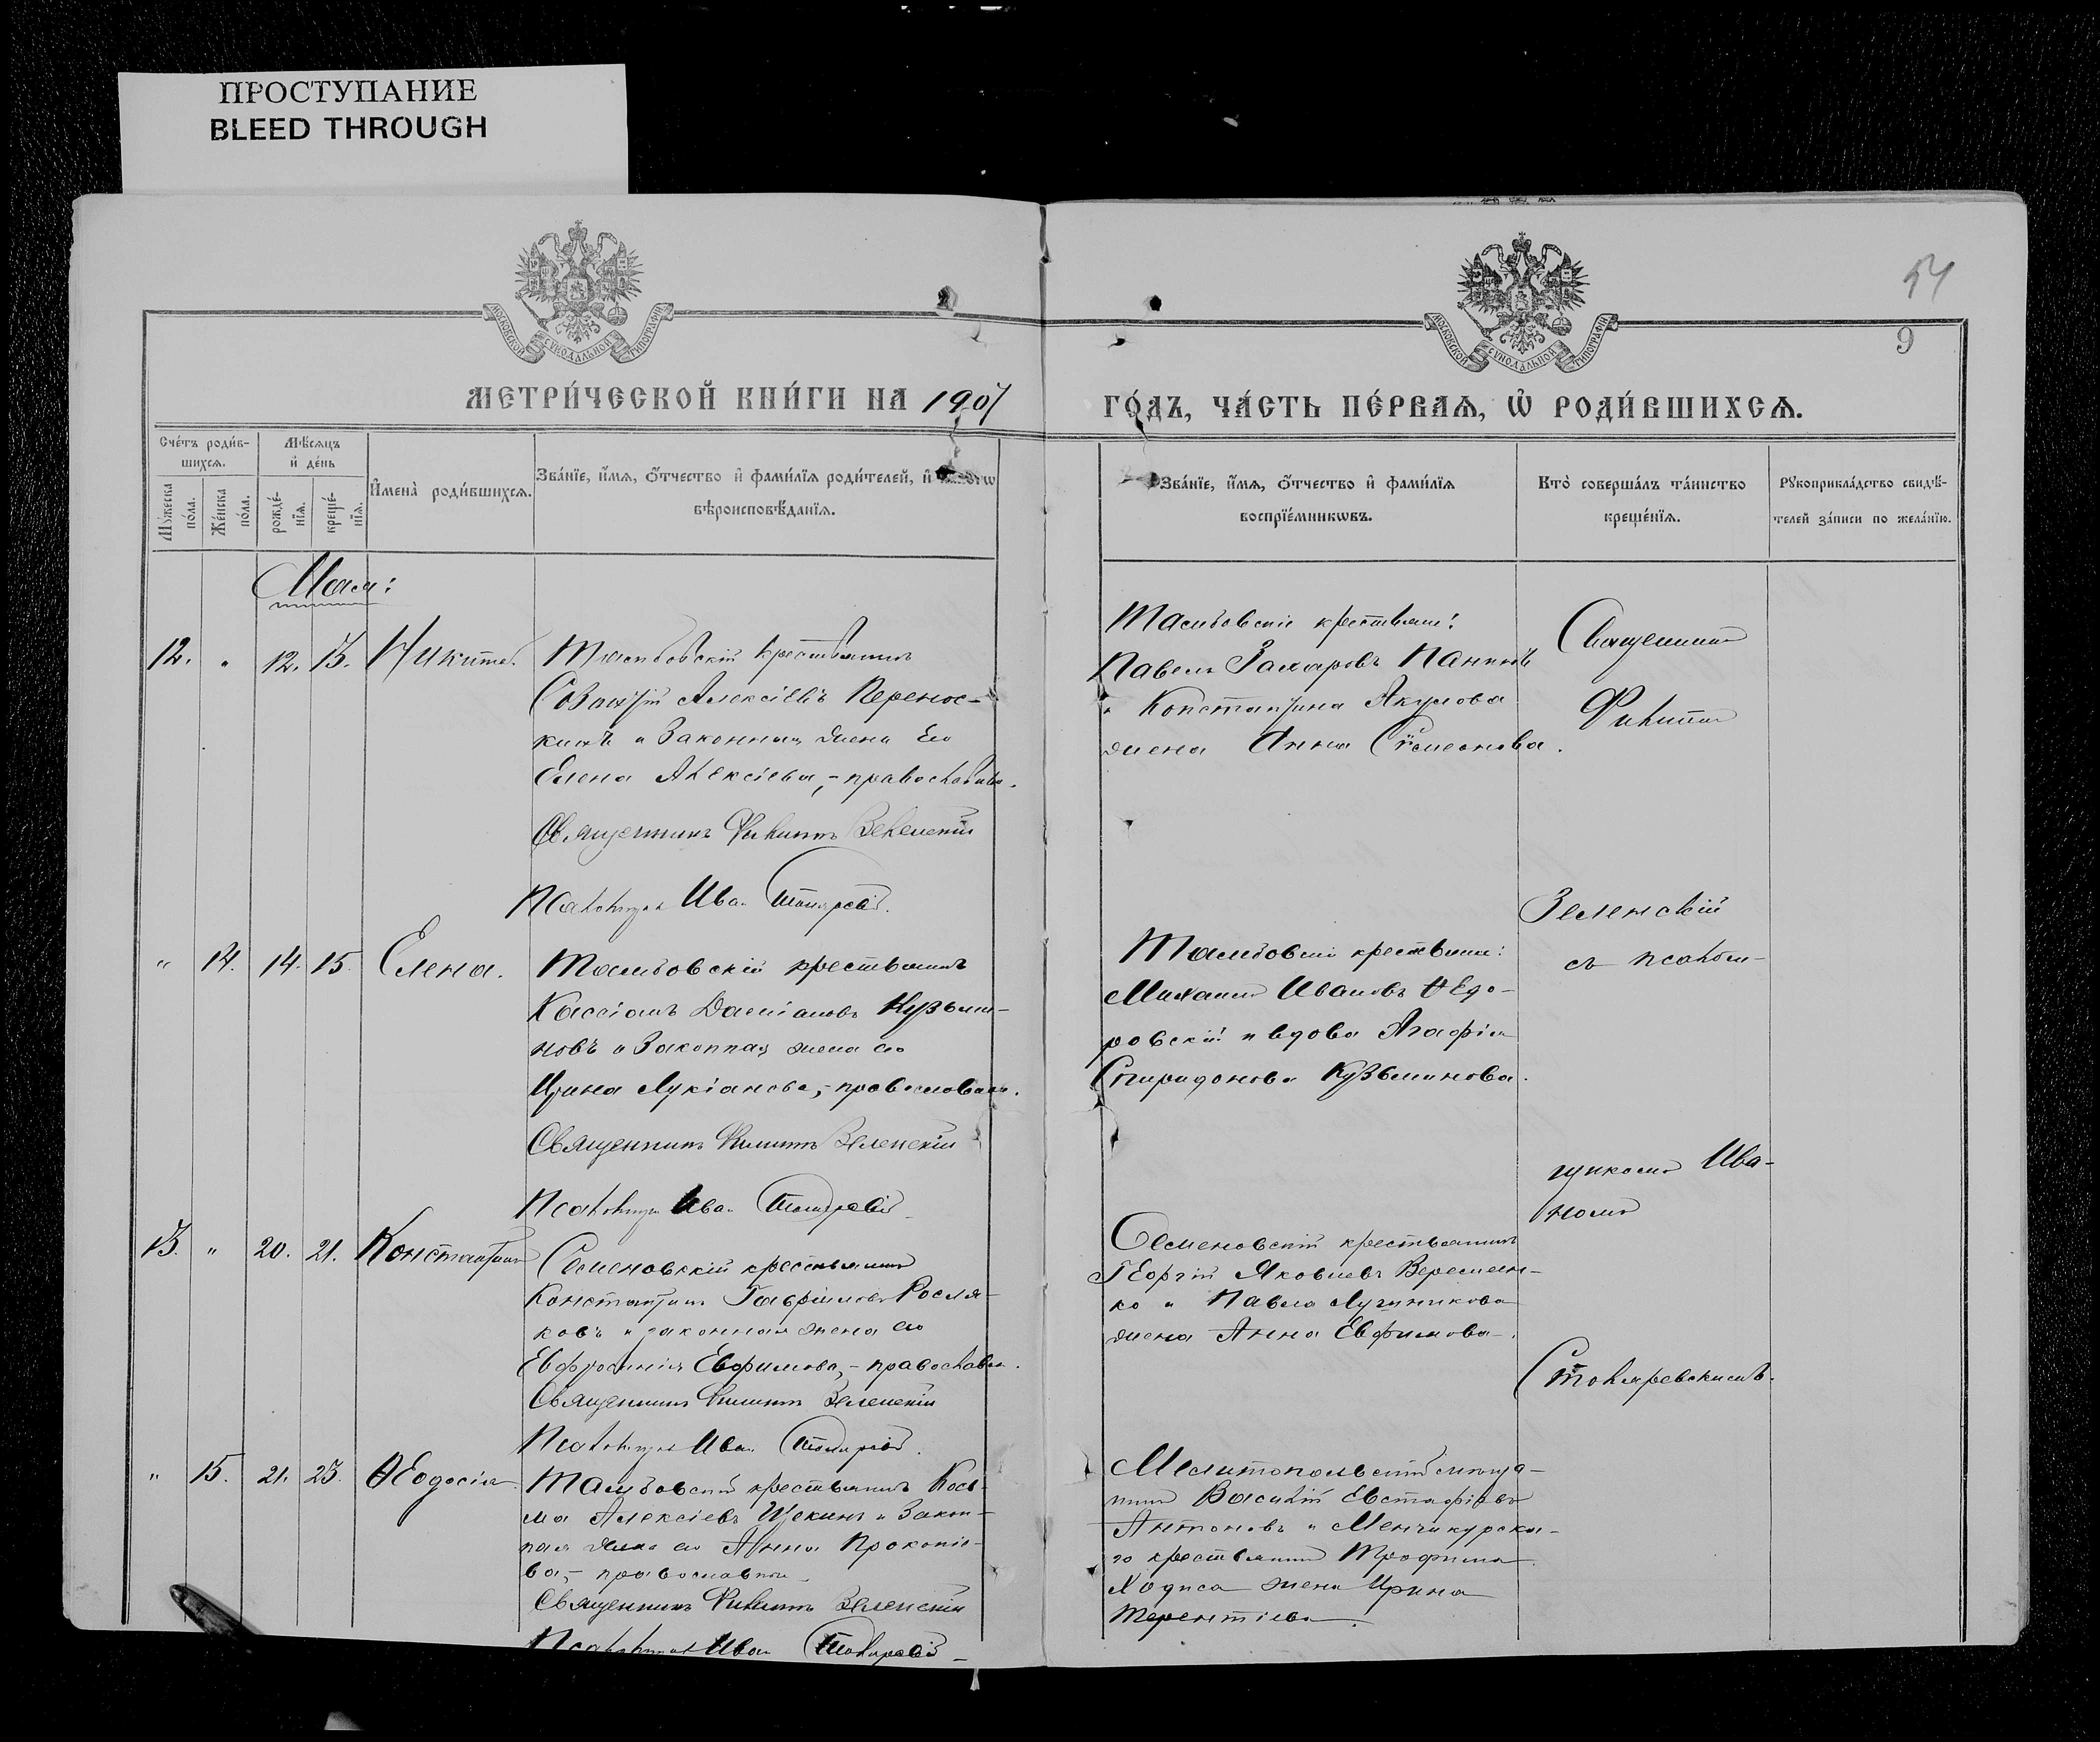 ПРОСТУПАНИЕ
BLEED THROUGH
54
МОСКОВСКОЙ СѴНОДАЛЬНОЙ ТИПОГРАФІИ
МОСКОВСКОЙ СѴНОДАЛЬНОЙ ТИПОГРАФІИ
9
МЕТРИ́ЧЕСКОЙ КНИ́ГИ НА 1907
ГО́ДЪ, ЧА́СТЬ ПЕ́РВАѦ, Ѡ҆ РОДИ́ВШИХСѦ.
Сче́тъ роди́в-
шихсѧ.
Мѣ́сѧцъ
и҆ де́нь
Мꙋ́жеска по́ла.
Же́нска по́ла.
рожде́-
нїѧ.
креще́-
нїѧ.
И҆мена̀ роди́вшихсѧ.
Зва́нїе, и҆́мѧ, ѻ҆́тчество и҆ фами́лїѧ роди́телей, и҆
вѣроисповѣ́данїѧ.
Зва́нїе, и҆́мѧ, ѻ҆́тчество и҆ фами́лїѧ
воспрїе́мникѡвъ.
Кто̀ соверша́лъ та́инство
креще́нїѧ.
Рꙋкоприкла́дство свидѣ́-
телей за́писи по жела́нїю.
Мая:
12. " 12. 13. Никита.
Тамбовскій крестьянинъ
Алексіевъ Перенос-
кинъ и Законная жена его
Елена Алексіева, - православн.
Священникъ Филиппъ Зеленскій
Псаломщикъ Иван Столяревскій
Тамбовскіе крестьяне:
Павелъ Захаровъ Панинъ
и Константина Акулова
жена Анна Сѵмеонова.
Священникъ
Филиппъ
Зеленскій
съ псалом-
щикомъ Ива-
номъ
Столяревскимъ.
" 14. 14. 15. Елена.
Тамбовскій крестьянинъ
Кассіанъ Даміановъ Кузьми-
новъ и Законная жена его
Ирина Лукіанова, - православн.
Священникъ Филиппъ Зеленскій
Псаломщикъ Иван Столяревскій
Тамбовскіе крестьяне:
Михаилъ Ивановъ Ѳедо-
ровскій и вдова Агафія
Спиридонова Кузьминова.
13. " 20. 21. Константинъ
Семеновскій крестьянинъ
Константинъ Гавріиловъ Росля-
ковъ и законная жена его
Евфросинія Евфимова, - православн.
Священникъ Филиппъ Зеленскій
Псаломщикъ Иван Столяревскій
Семеновскій крестьянинъ
Георгій Яковлевъ Веремеен-
ко и Павла Лучникова
жена Анна Евфимова.
" 15. 21. 23. Ѳеодосія.
Тамбовскій крестьянинъ Кось-
ма Алексіевъ Щекинъ и Закон-
ная жена его Анна Прокопіе-
ва, - православные
Священникъ Филиппъ Зеленскій
Псаломщикъ Иван Столяревскій
Мелитопольскій мѣща-
нинъ Василій Евстафіевъ
Антоновъ и Менчикурска-
го крестьянина Трофима
Ходиса жена Ирина
Терентіева.